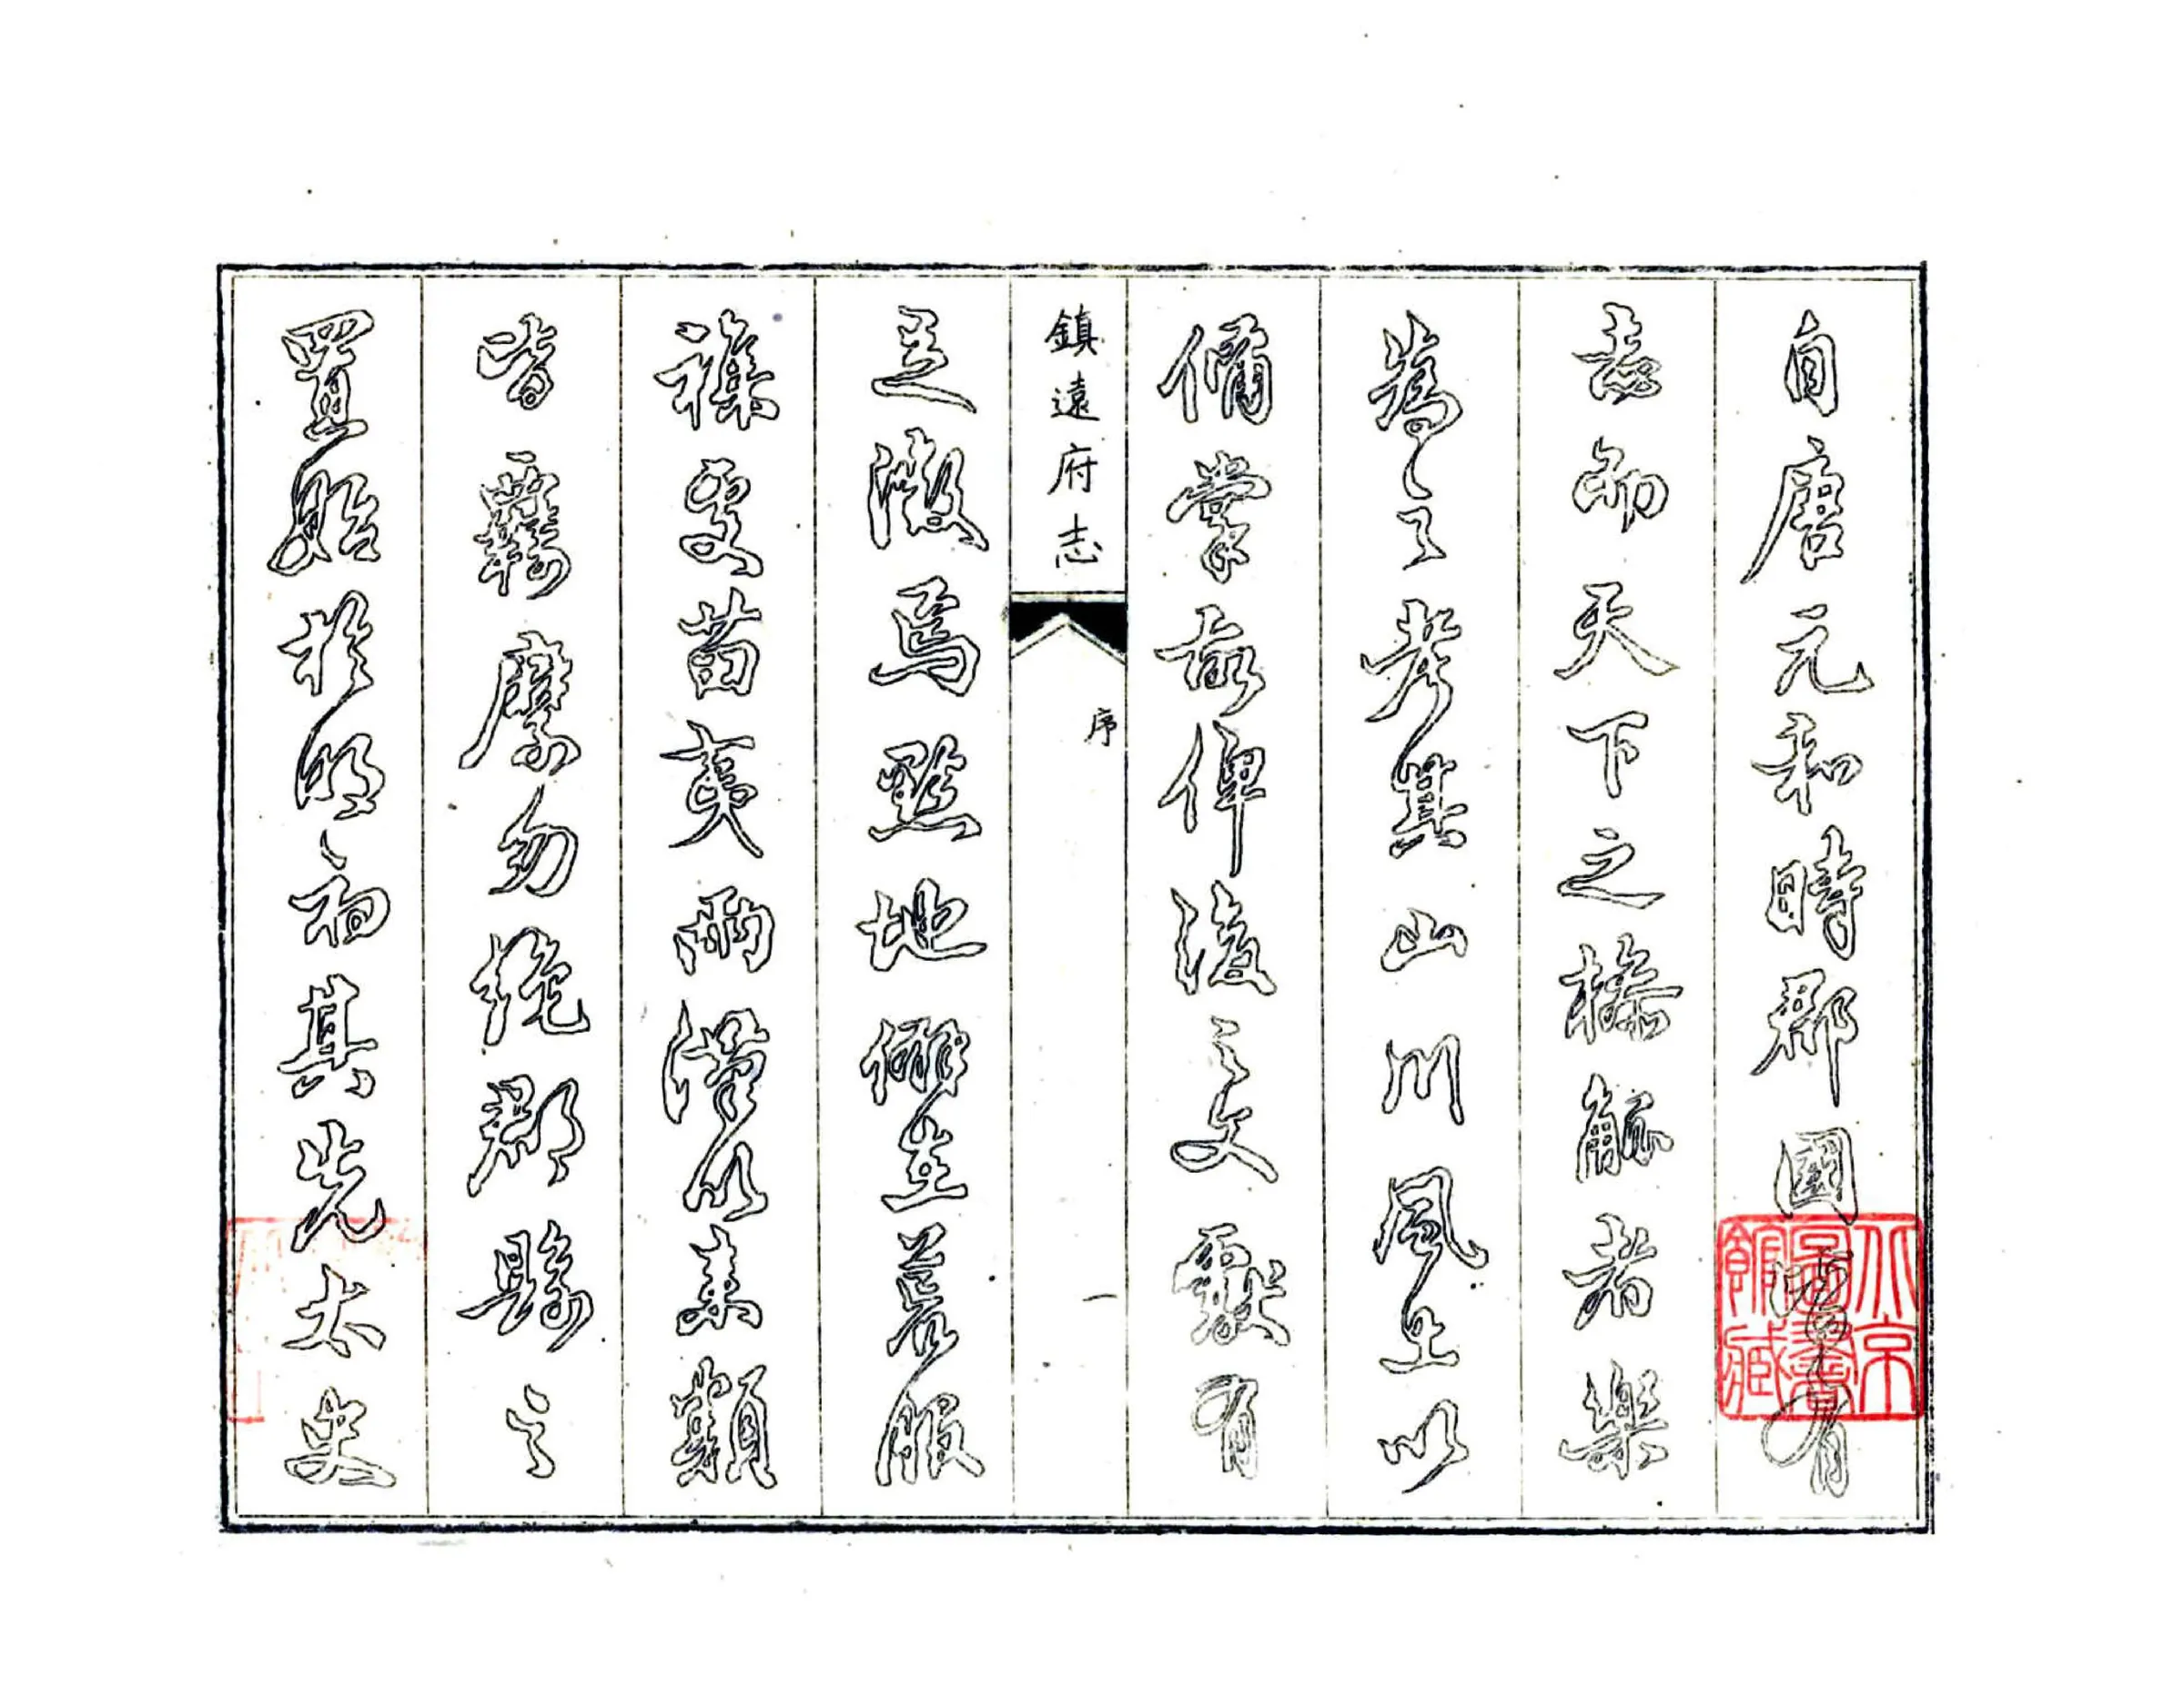 自唐元和時郡國有
志而天下之操觚者樂
為之考其山川風土以
備掌故俾後之文獻有
鎮遠府志
序
一
足徵焉黔地僻在荒服
雜處苗夷兩漢以來類
皆羈縻勿絕郡縣之
置貽於明初其先太史
北京圖書館藏